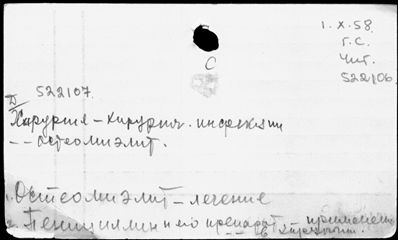 1.X.58
Г.С.
Чит.
522106
С
522107.
Хирургия - хирургич. инфекции
-- остеомиэлит.
1. Остеомиэлит - лечение
2. Пенициллин и его препарат. - применение
в хирургии.